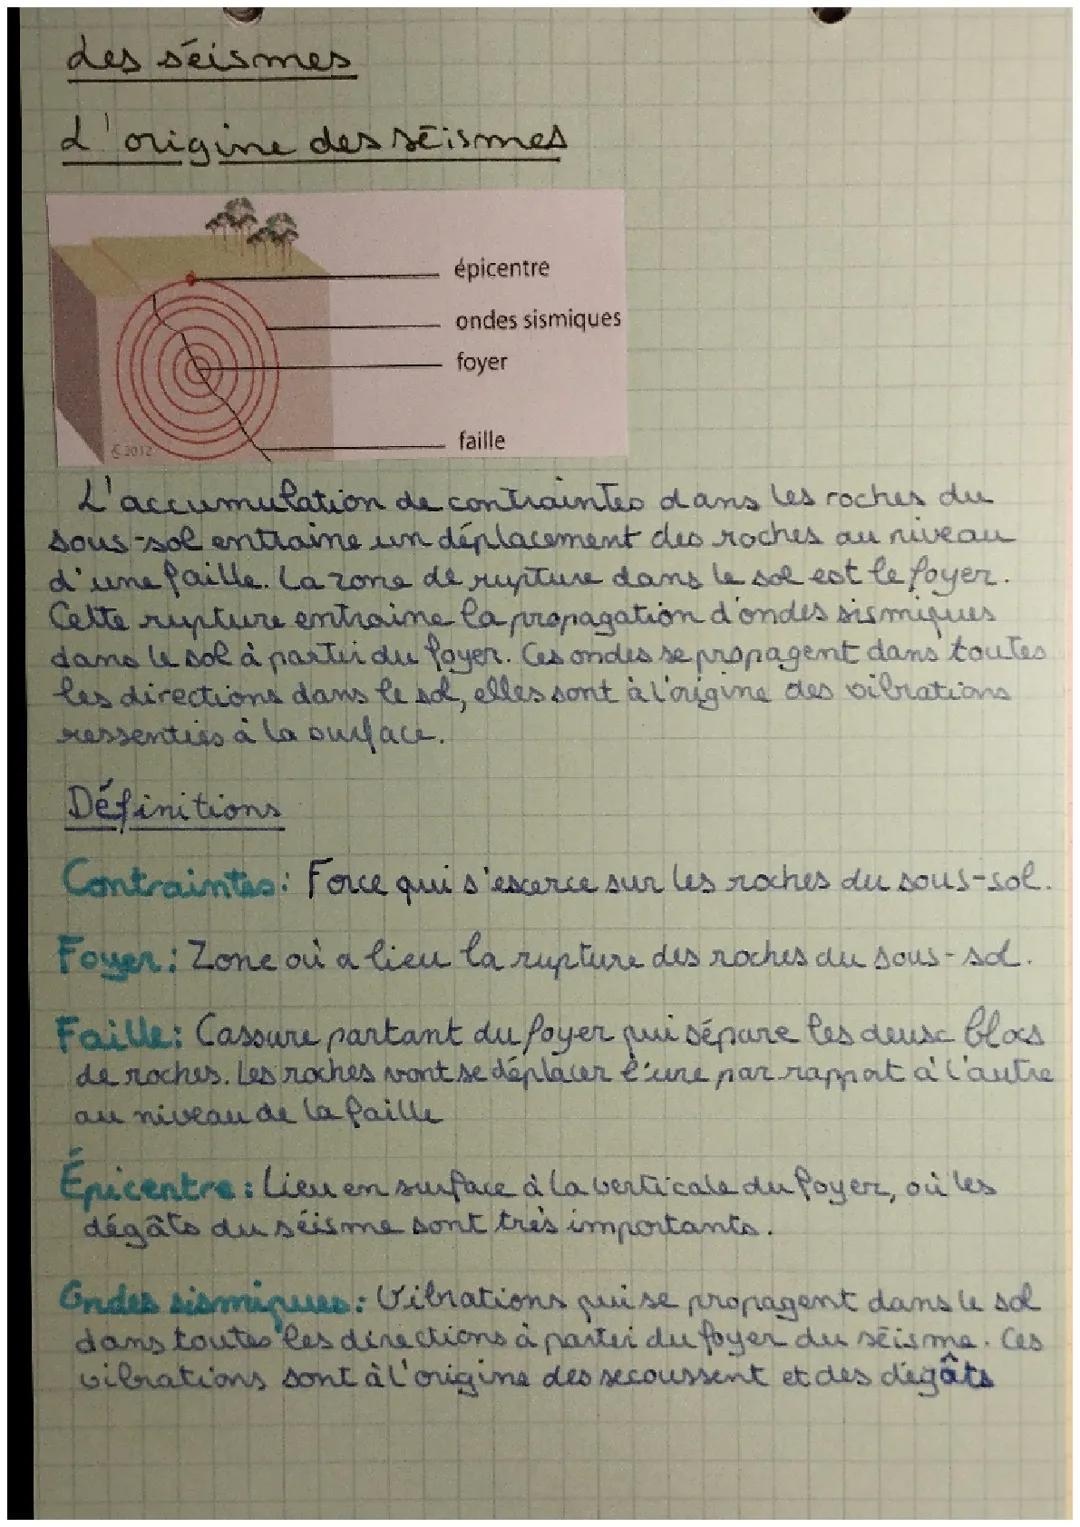 Les séismes
L'origine des séismes
épicentre
ondes sismiques
foyer
faille
© 2012
L'accumulation de contraintes dans les roches du
sous-sol entraine un déplacement des roches au niveau
d'une faille. La zone de rupture dans le sol est le foyer.
Cette rupture entraine la propagation d'ondes sismiques
dans le sol à partir du foyer. Ces ondes se propagent dans toutes
les directions dans le sol, elles sont à l'origine des vibrations
ressenties à la surface.
Définitions
Contraintes: Force qui s'exerce sur les roches du sous-sol.
Foyer: Zone où a lieu la rupture des roches du sous-sol.
Faille: Cassure partant du foyer qui sépare les deux blocs
de roches. Les roches vont se déplacer l'une par rapport à l'autre
au niveau de la faille
Épicentre: Lieu en surface à la verticale du foyer, où les
dégâts du séisme sont très importants.
Ondes sismiques: Vibrations qui se propagent dans le sol
dans toutes les directions à partir du foyer du séisme. Ces
vibrations sont à l'origine des secoussent et des dégâts